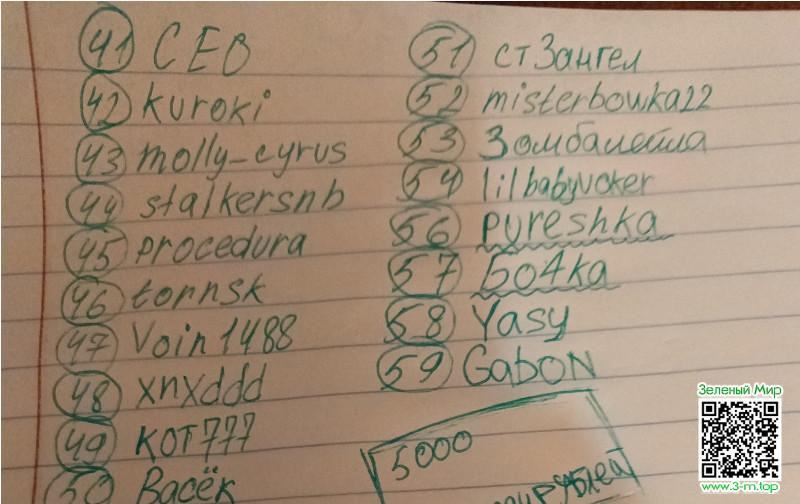 41 CEO
42 kuroki
43 molly-cyrus
44 stalkersnb
45 procedura
46 tornsk
47 Voin1488
48 xnxddd
49 КОТ777
50 Васёк
51 ст3ангел
52 misterbowka22
53 Зомбалейла
54 lilbabyvoker
56 pyreshka
57 Бо4ка
58 Yasy
59 GaboN
5000
рублей
Зеленый Мир
www.3-m.top